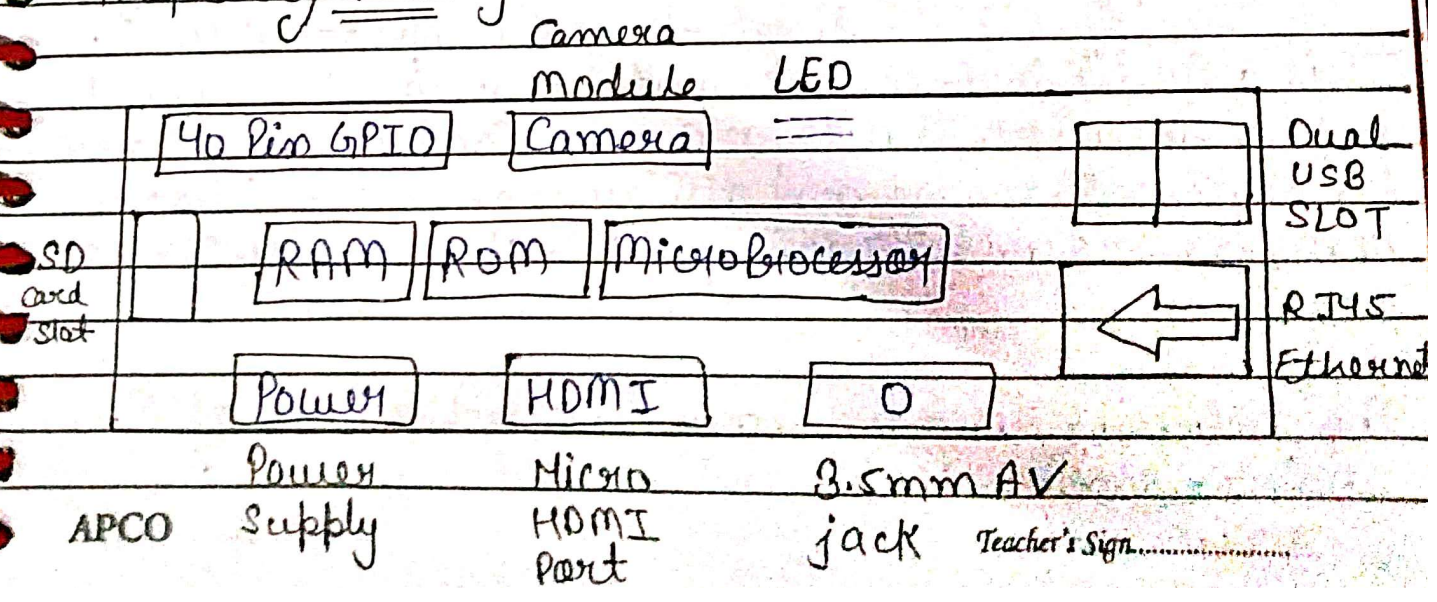 Camera
Module LED
40 Pin GPIO Camera
Dual
USB
SLOT
SD
Card
Slot
RAM ROM Microprocessor
RJ45
Ethernet
Power HDMI O
Power Micro 3.5mm AV
Supply HDMI jack
Port
APCO Teacher's Sign.....................